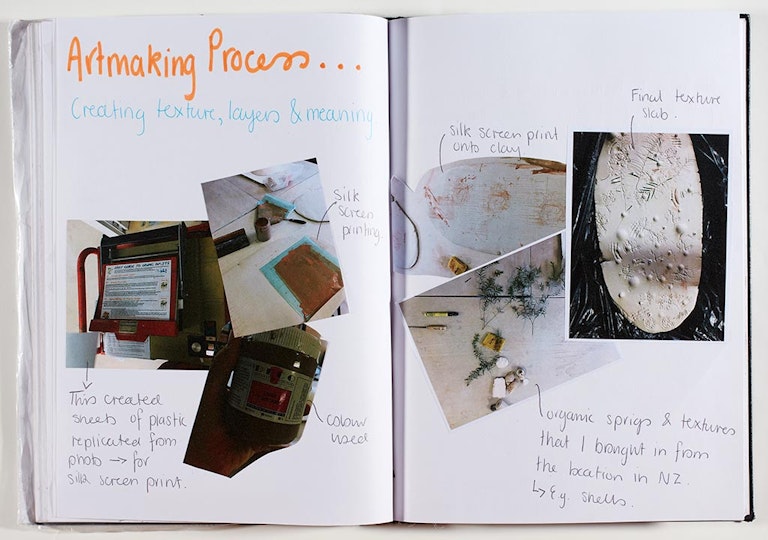 Artmaking Process...
Creating texture, layers & meaning.
silk
screen
printing
This created
sheets of plastic
replicated from
photo → for
silk screen print.
colour
used
silk screen print
onto clay
Final texture
slab.
organic sprigs & textures
that I brought in from
the location in NZ.
↳ E.g. shells.